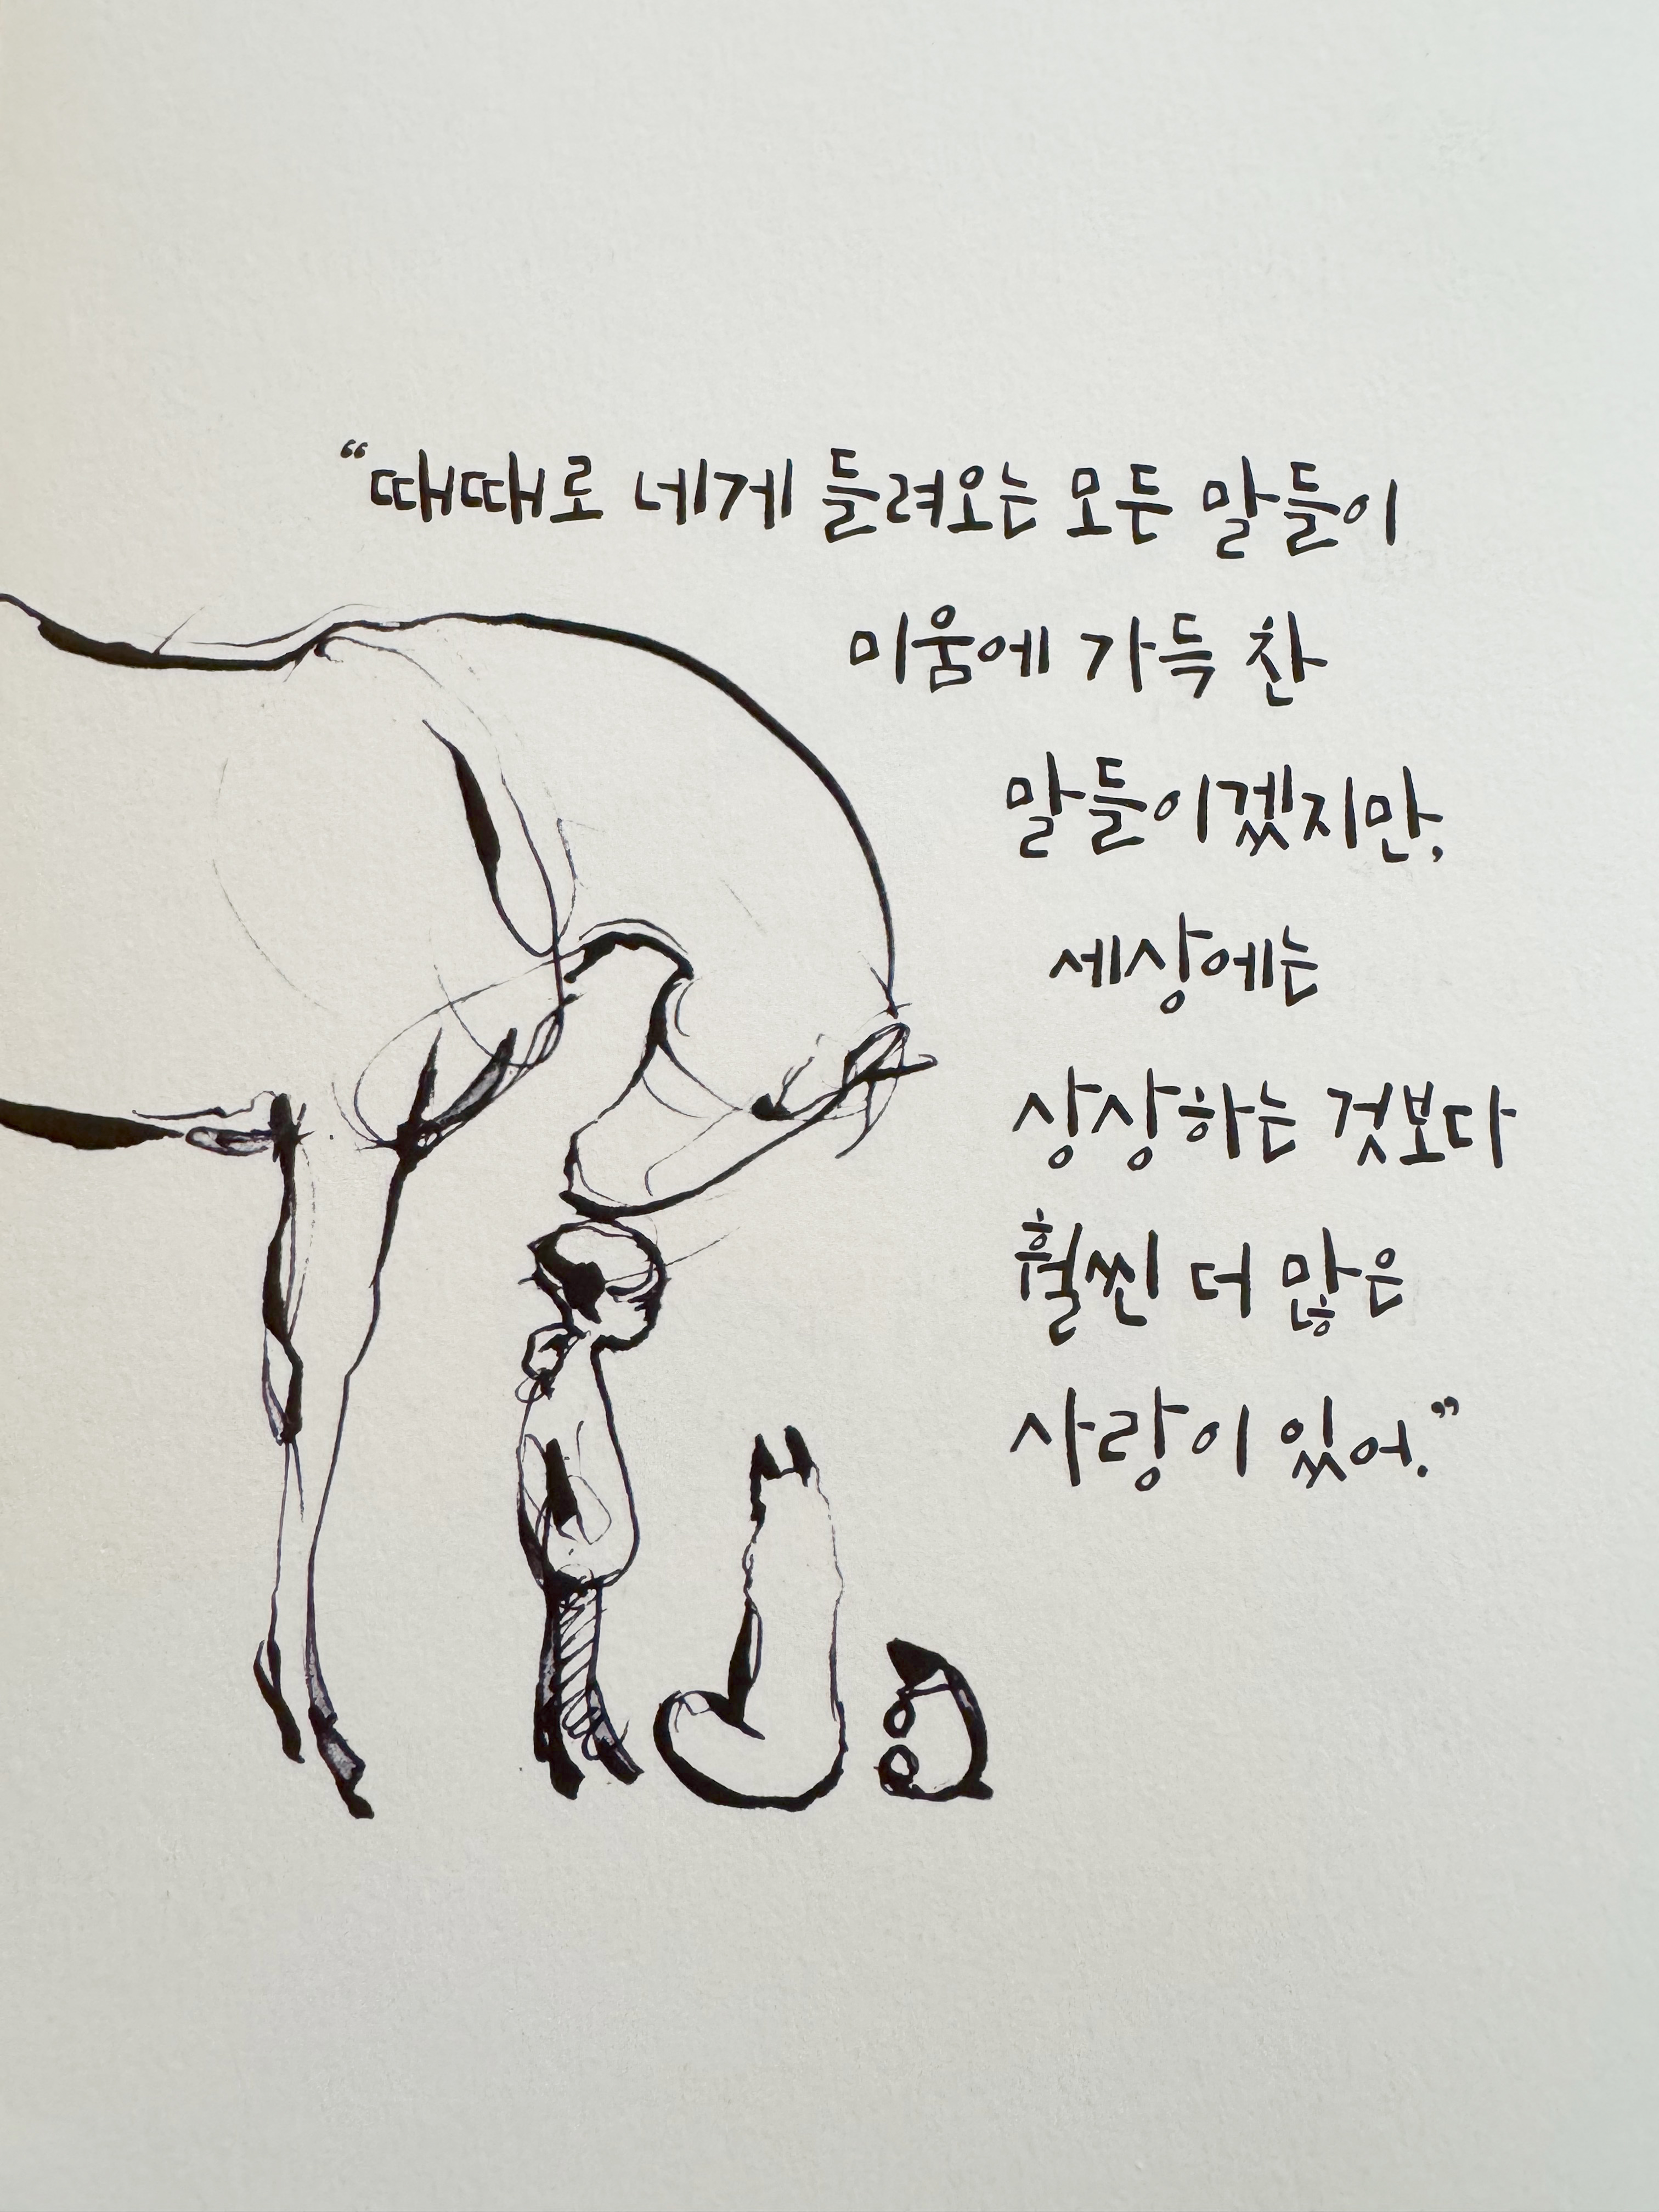 “때때로 네게 들려오는 모든 말들이
미움에 가득 찬
말들이겠지만,
세상에는
상상하는 것보다
훨씬 더 많은
사랑이 있어.”